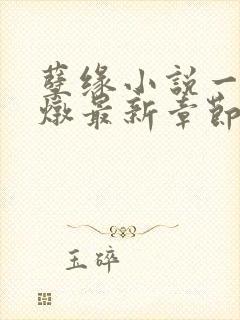 孽缘小說一
燉最新章節
玉碎